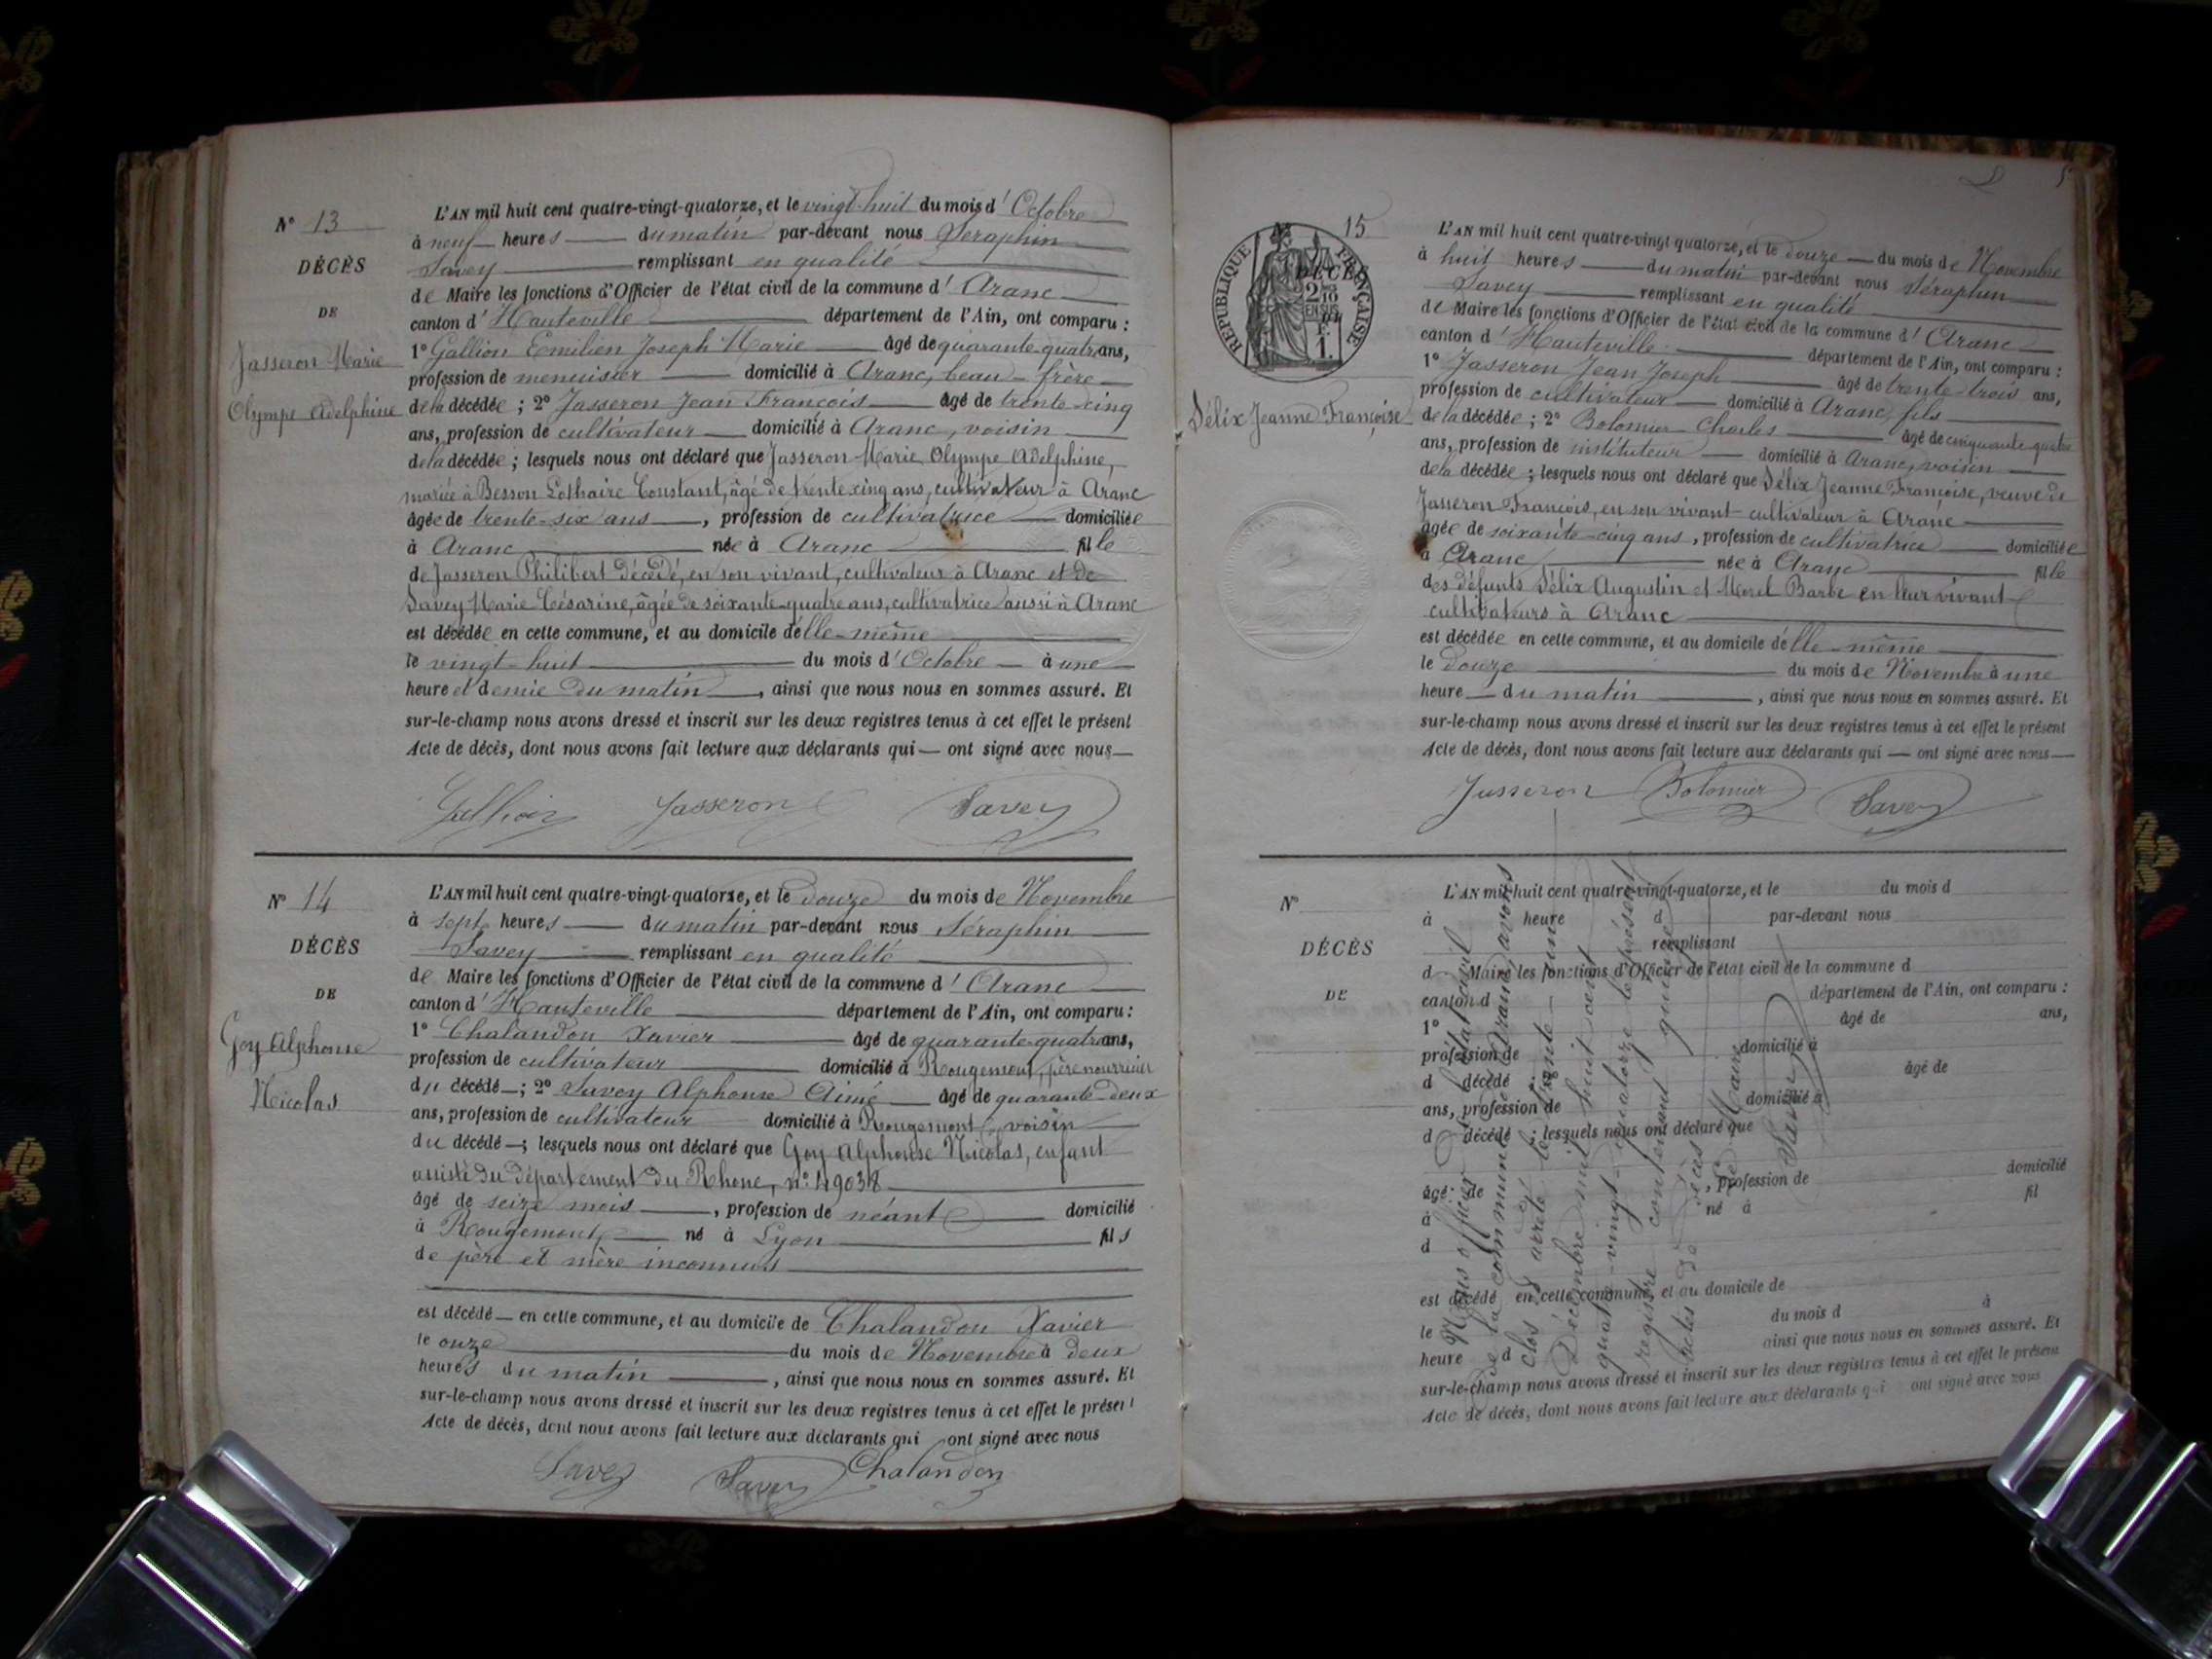 N° 13
DÉCÈS
DE
Jasseron Marie
Olympe Adelphine
L'AN mil huit cent quatre-vingt-quatorze, et le vingt-huit du mois d'Octobre
à neuf heures du matin par-devant nous Séraphin
Savey remplissant en qualité
de Maire les fonctions d'Officier de l'état civil de la commune d'Aranc
canton d'Hauteville département de l'Ain, ont comparu :
1° Gallion Emilien Joseph Marie âgé de quarante-quatre ans,
profession de menuisier domicilié à Aranc, beau-frère
de la décédée ; 2° Jasseron Jean François âgé de trente-cinq
ans, profession de cultivateur domicilié à Aranc, voisin
de la décédée ; lesquels nous ont déclaré que Jasseron Marie Olympe Adelphine,
mariée à Besson Lothaire Constant, âgé de trente cinq ans, cultivateur à Aranc
âgée de trente-six ans, profession de cultivatrice domiciliée
à Aranc née à Aranc fille
de Jasseron Philibert décédé, en son vivant, cultivateur à Aranc et de
Savey Marie Césarine, âgée de soixante-quatre ans, cultivatrice aussi à Aranc
est décédée en cette commune, et au domicile d'elle-même
le vingt-huit du mois d'Octobre à une
heure et demie du matin, ainsi que nous nous en sommes assuré. Et
sur-le-champ nous avons dressé et inscrit sur les deux registres tenus à cet effet le présent
Acte de décès, dont nous avons fait lecture aux déclarants qui — ont signé avec nous
Gallion Jasseron Savey
N° 14
DÉCÈS
DE
Goy Alphonse
Nicolas
L'AN mil huit cent quatre-vingt-quatorze, et le douze du mois de Novembre
à sept heures du matin par-devant nous Séraphin
Savey remplissant en qualité
de Maire les fonctions d'Officier de l'état civil de la commune d'Aranc
canton d'Hauteville département de l'Ain, ont comparu :
1° Chalandon Xavier âgé de quarante-quatre ans,
profession de cultivateur domicilié à Rougemont, père nourricier
du décédé ; 2° Savey Alphonse Aimé âgé de quarante-deux
ans, profession de cultivateur domicilié à Rougemont, voisin
du décédé ; lesquels nous ont déclaré que Goy Alphonse Nicolas, enfant
assisté du département du Rhone, n°
âgé de seize mois, profession de néant domicilié
à Rougemont, né à Lyon fils
de père et mère inconnus
est décédé en cette commune, et au domicile de Chalandon Xavier
le onze du mois de Novembre à deux
heures du matin, ainsi que nous nous en sommes assuré. Et
sur-le-champ nous avons dressé et inscrit sur les deux registres tenus à cet effet le présent
Acte de décès, dont nous avons fait lecture aux déclarants qui ont signé avec nous
Savey Savey Chalandon
15
RÉPUBLIQUE FRANÇAISE
DÉCÈS
2/10 EN SUS
DE
1 F.
Félix Jeanne Françoise
L'AN mil huit cent quatre-vingt-quatorze, et le douze du mois de Novembre
à huit heures du matin par-devant nous Séraphin
Savey remplissant en qualité
de Maire les fonctions d'Officier de l'état civil de la commune d'Aranc
canton d'Hauteville département de l'Ain, ont comparu :
1° Jasseron Jean Joseph âgé de trente-trois ans,
profession de cultivateur domicilié à Aranc, fils
de la décédée ; 2° Bolomier Charles âgé de cinquante-quatre
ans, profession de instituteur domicilié à Aranc, voisin
de la décédée ; lesquels nous ont déclaré que Félix Jeanne Françoise, veuve de
Jasseron François, en son vivant cultivateur à Aranc
âgée de soixante-cinq ans, profession de cultivatrice domiciliée
à Aranc née à Aranc fille
des défunts Félix Augustin et Morel Barbe en leur vivant
cultivateurs à Aranc
est décédée en cette commune, et au domicile d'elle-même
le douze du mois de Novembre à une
heure du matin, ainsi que nous nous en sommes assuré. Et
sur-le-champ nous avons dressé et inscrit sur les deux registres tenus à cet effet le présent
Acte de décès, dont nous avons fait lecture aux déclarants qui — ont signé avec nous
Jasseron Bolomier Savey
N°
DÉCÈS
DE
L'AN mil huit cent quatre-vingt-quatorze, et le du mois d
à heure d par-devant nous
remplissant
d Maire les fonctions d'Officier de l'état civil de la commune d
canton d département de l'Ain, ont comparu :
1° âgé de ans,
profession de domicilié à
d décédé ; 2° âgé de
ans, profession de domicilié à
d décédé ; lesquels nous ont déclaré que
âgé de , profession de domicilié
à né à fil
d
est décédé en cette commune, et au domicile de
le du mois d à
heure d ainsi que nous nous en sommes assuré. Et
sur-le-champ nous avons dressé et inscrit sur les deux registres tenus à cet effet le présent
Acte de décès, dont nous avons fait lecture aux déclarants qui ont signé avec nous
Nous officier de l'état civil
de la commune d'Aranc, avons
clos et arrêté le trente-un
Décembre mil huit cent
quatre-vingt-quatorze le présent
registre contenant quinze
actes de décès
Le Maire
Savey